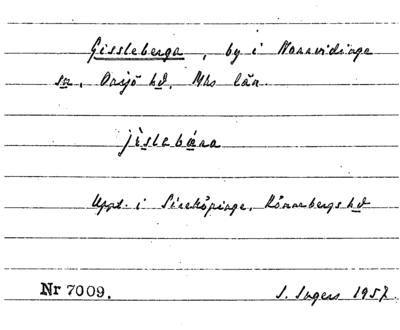 Gissleberga, by i Norrvidinge
sn, Onsjö hd, Mhs län.
jìslabæ̀ra
Uppt. i Sireköpinge, Rönnebergs hd
Nr 7009. I. Ingers 1957.